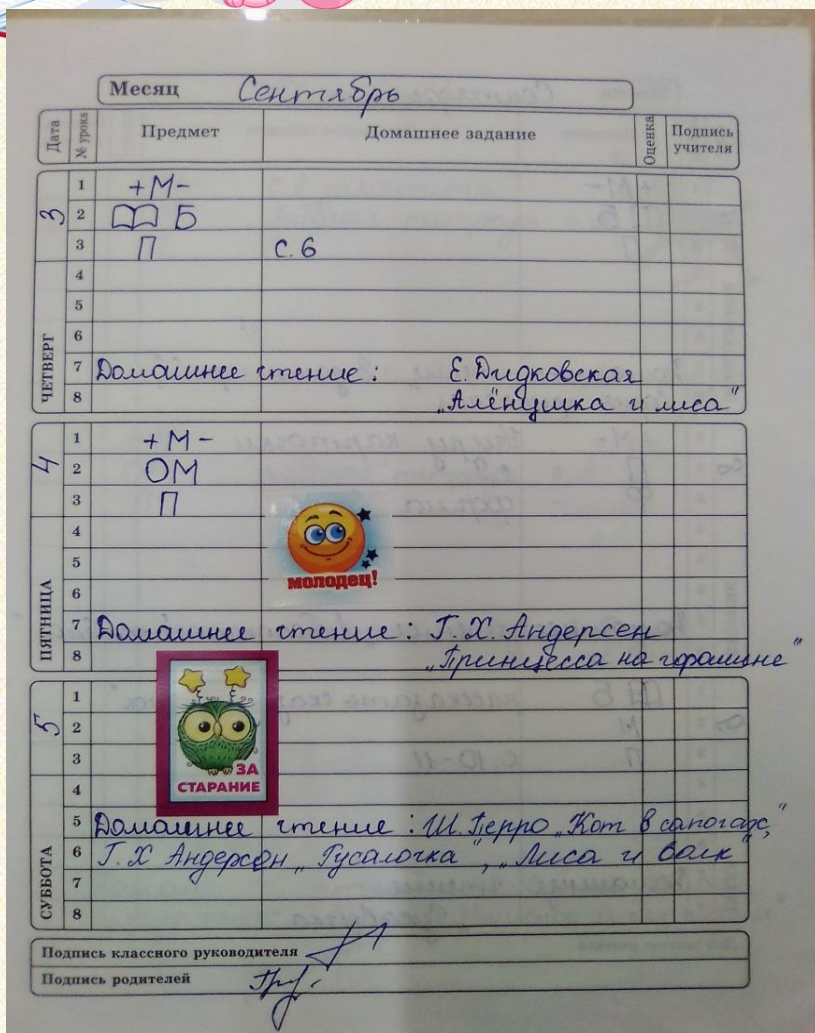 Месяц Сентябрь
Дата № урока Предмет Домашнее задание Оценка Подпись учителя
3 ЧЕТВЕРГ
1 +М-
2 Б
3 П с. 6
4
5
6
7 Домашнее чтение: Е. Дидковская
8 „Алёнушка и лиса"
4 ПЯТНИЦА
1 +М-
2 ОМ
3 П
4
5
МОЛОДЕЦ!
6
7 Домашнее чтение: Г. Х. Андерсен
8 „Принцесса на горошине"
5 СУББОТА
1
2
3
ЗА
СТАРАНИЕ
4
5 Домашнее чтение: Ш. Перро „Кот в сапогах",
6 Г. Х Андерсен „Русалочка", „Лиса и волк"
7
8
Подпись классного руководителя
Подпись родителей